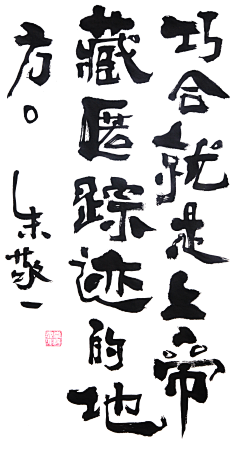 巧合就是上帝
藏匿踪迹的地
方。
朱敬一